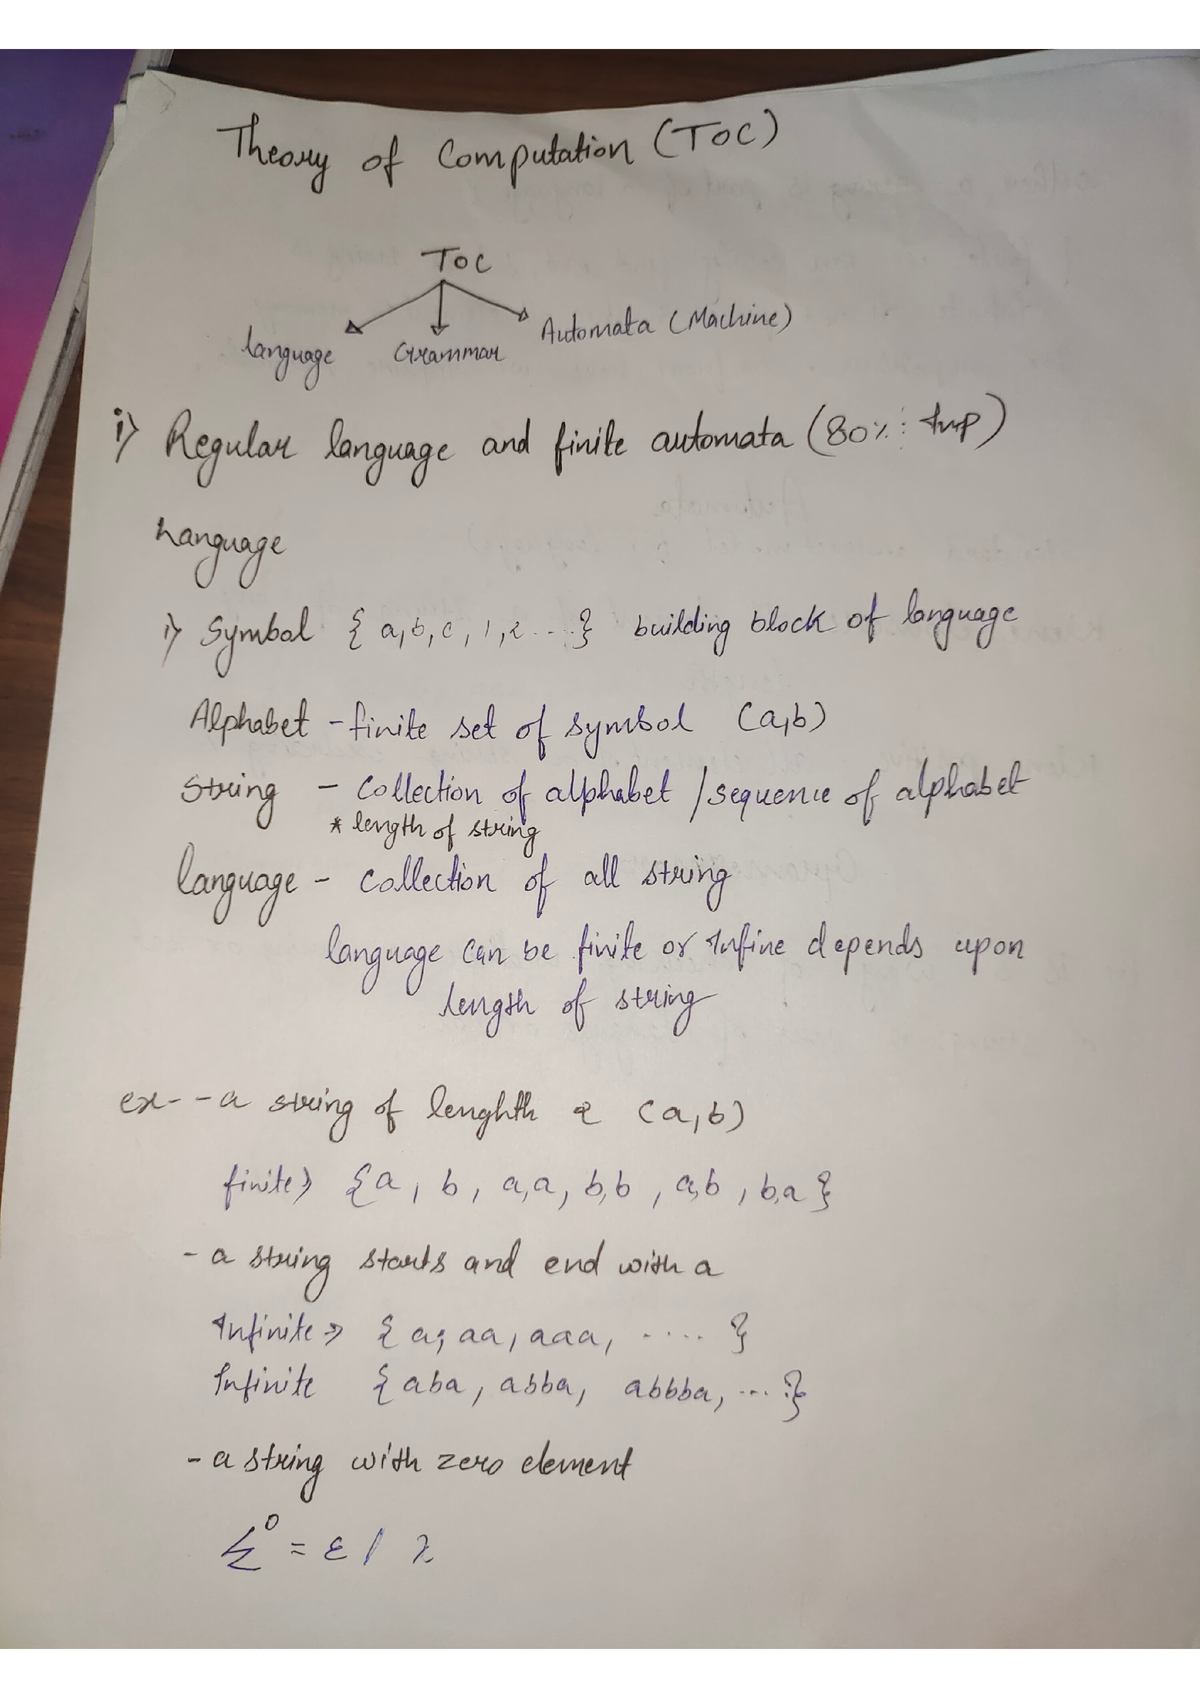 Theory of Computation (TOC)
TOC
language Grammar Automata (Machine)
i) Regular language and finite automata (80% Imp)
Language
i) Symbol { a, b, c, 1, 2 ....} building block of language
Alphabet - finite set of symbol (a,b)
String - Collection of alphabet / sequence of alphabet
* length of string
language - Collection of all string
language can be finite or Infine depends upon
length of string
ex- - a string of lenghth 2 (a, b)
finite) {a, b, a,a, b,b, a,b, b,a}
- a string starts and end with a
Infinite => { a, aa, aaa, ..... }
Infinite { aba, abba, abbba, ... }
- a string with zero element
Σ⁰ = ε / λ